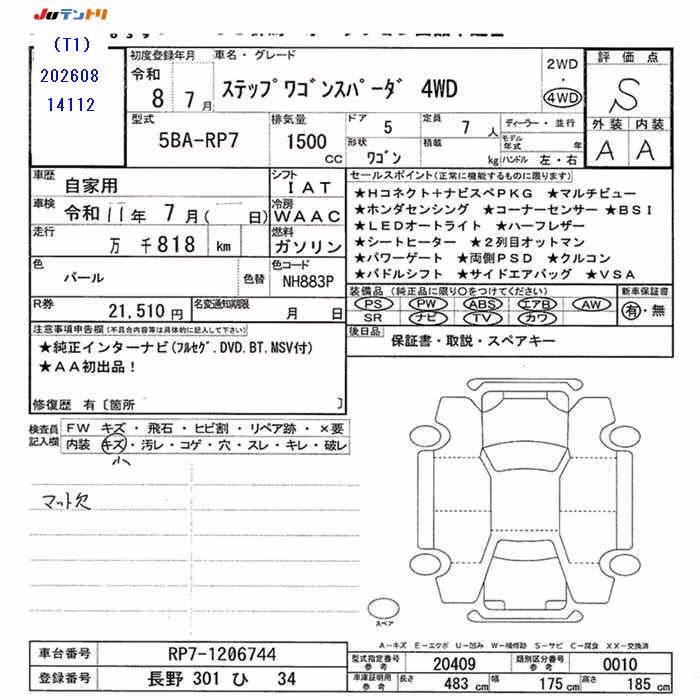 JUテントリ
(T1)
202608
14112
初度登録年月
令和
8 7月
車名・グレード
ステップワゴンスパーダ 4WD
2WD
・
4WD
評価点
S
外装 内装
A A
型式
5BA-RP7
排気量
1500
CC
ドア
5
定員
7 人
形状
ワゴン
積載
kg
ディーラー・並行
モデル年式 年
ハンドル 左・右
車歴
自家用
シフト
IAT
車検
令和 11年 7月( 日)
冷房
WAAC
走行
万 千818 km
燃料
ガソリン
色
パール
色替
色コード
NH883P
R券
21,510円
名変通知期限
月 日
セールスポイント(正常に機能するものに限ります)
★Hコネクト+ナビスペPKG ★マルチビュー
★ホンダセンシング ★コーナーセンサー ★BSI
★LEDオートライト ★ハーフレザー
★シートヒーター ★2列目オットマン
★パワーゲート ★両側PSD ★クルコン
★パドルシフト ★サイドエアバッグ ★VSA
装備品(純正品に限り○をつけてください)
PS PW ABS エアB AW
SR ナビ TV カワ
新車保証書
有・無
後日品
保証書・取説・スペアキー
注意事項申告欄(不具合内容等は具体的に記入して下さい)
★純正インターナビ(フルセグ.DVD.BT.MSV付)
★AA初出品!
修復歴 有〔箇所 〕
検査員
記入欄
FW キズ・飛石・ヒビ割・リペア跡・×要
内装 キズ・汚レ・コゲ・穴・スレ・キレ・破レ
小
マット欠
スペア
A-キズ E-エクボ U-凹み W-補修跡 S-サビ C-腐食 XX-交換済
車台番号
RP7-1206744
登録番号
長野 301 ひ 34
型式指定番号
参考
20409
類別区分番号
参考
0010
車庫証明用
参考
長さ 483 cm
幅 175 cm
高さ 185 cm